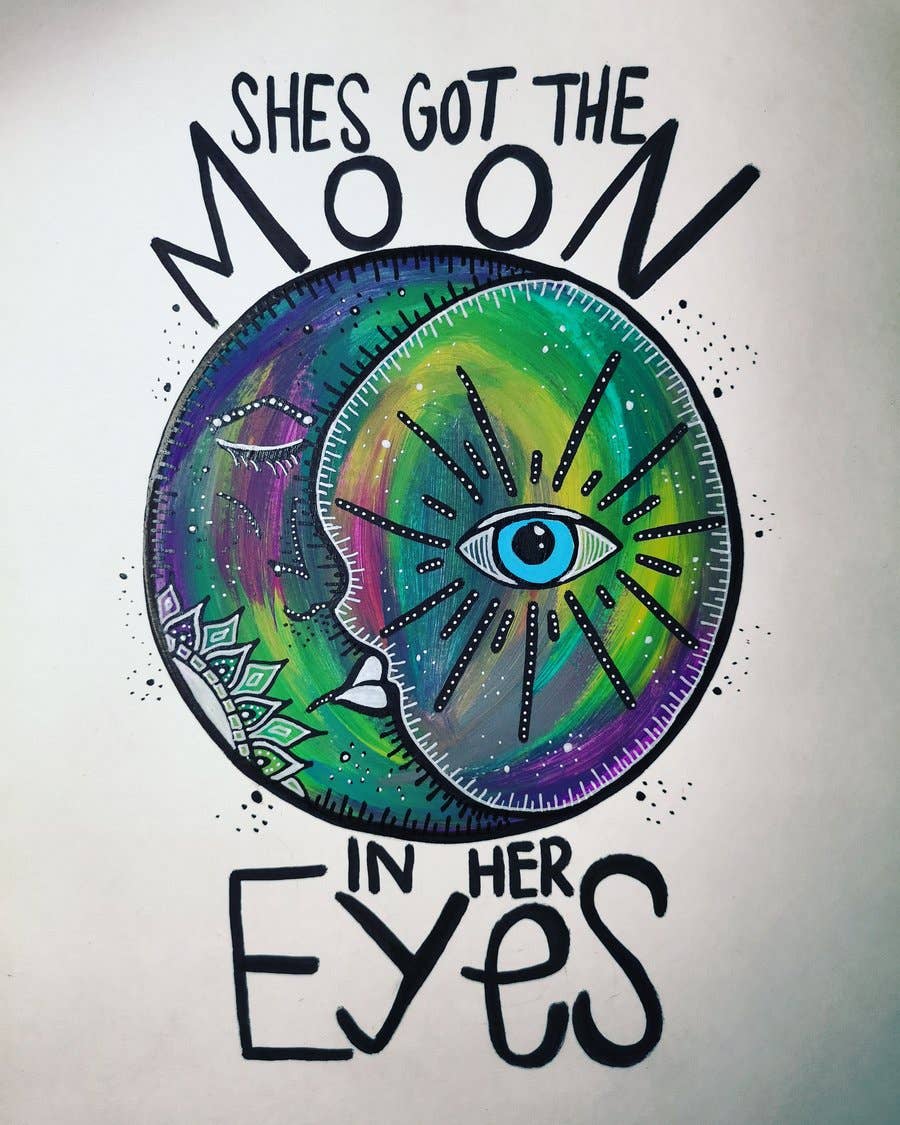 SHES GOT THE
MOON
IN HER
EYeS